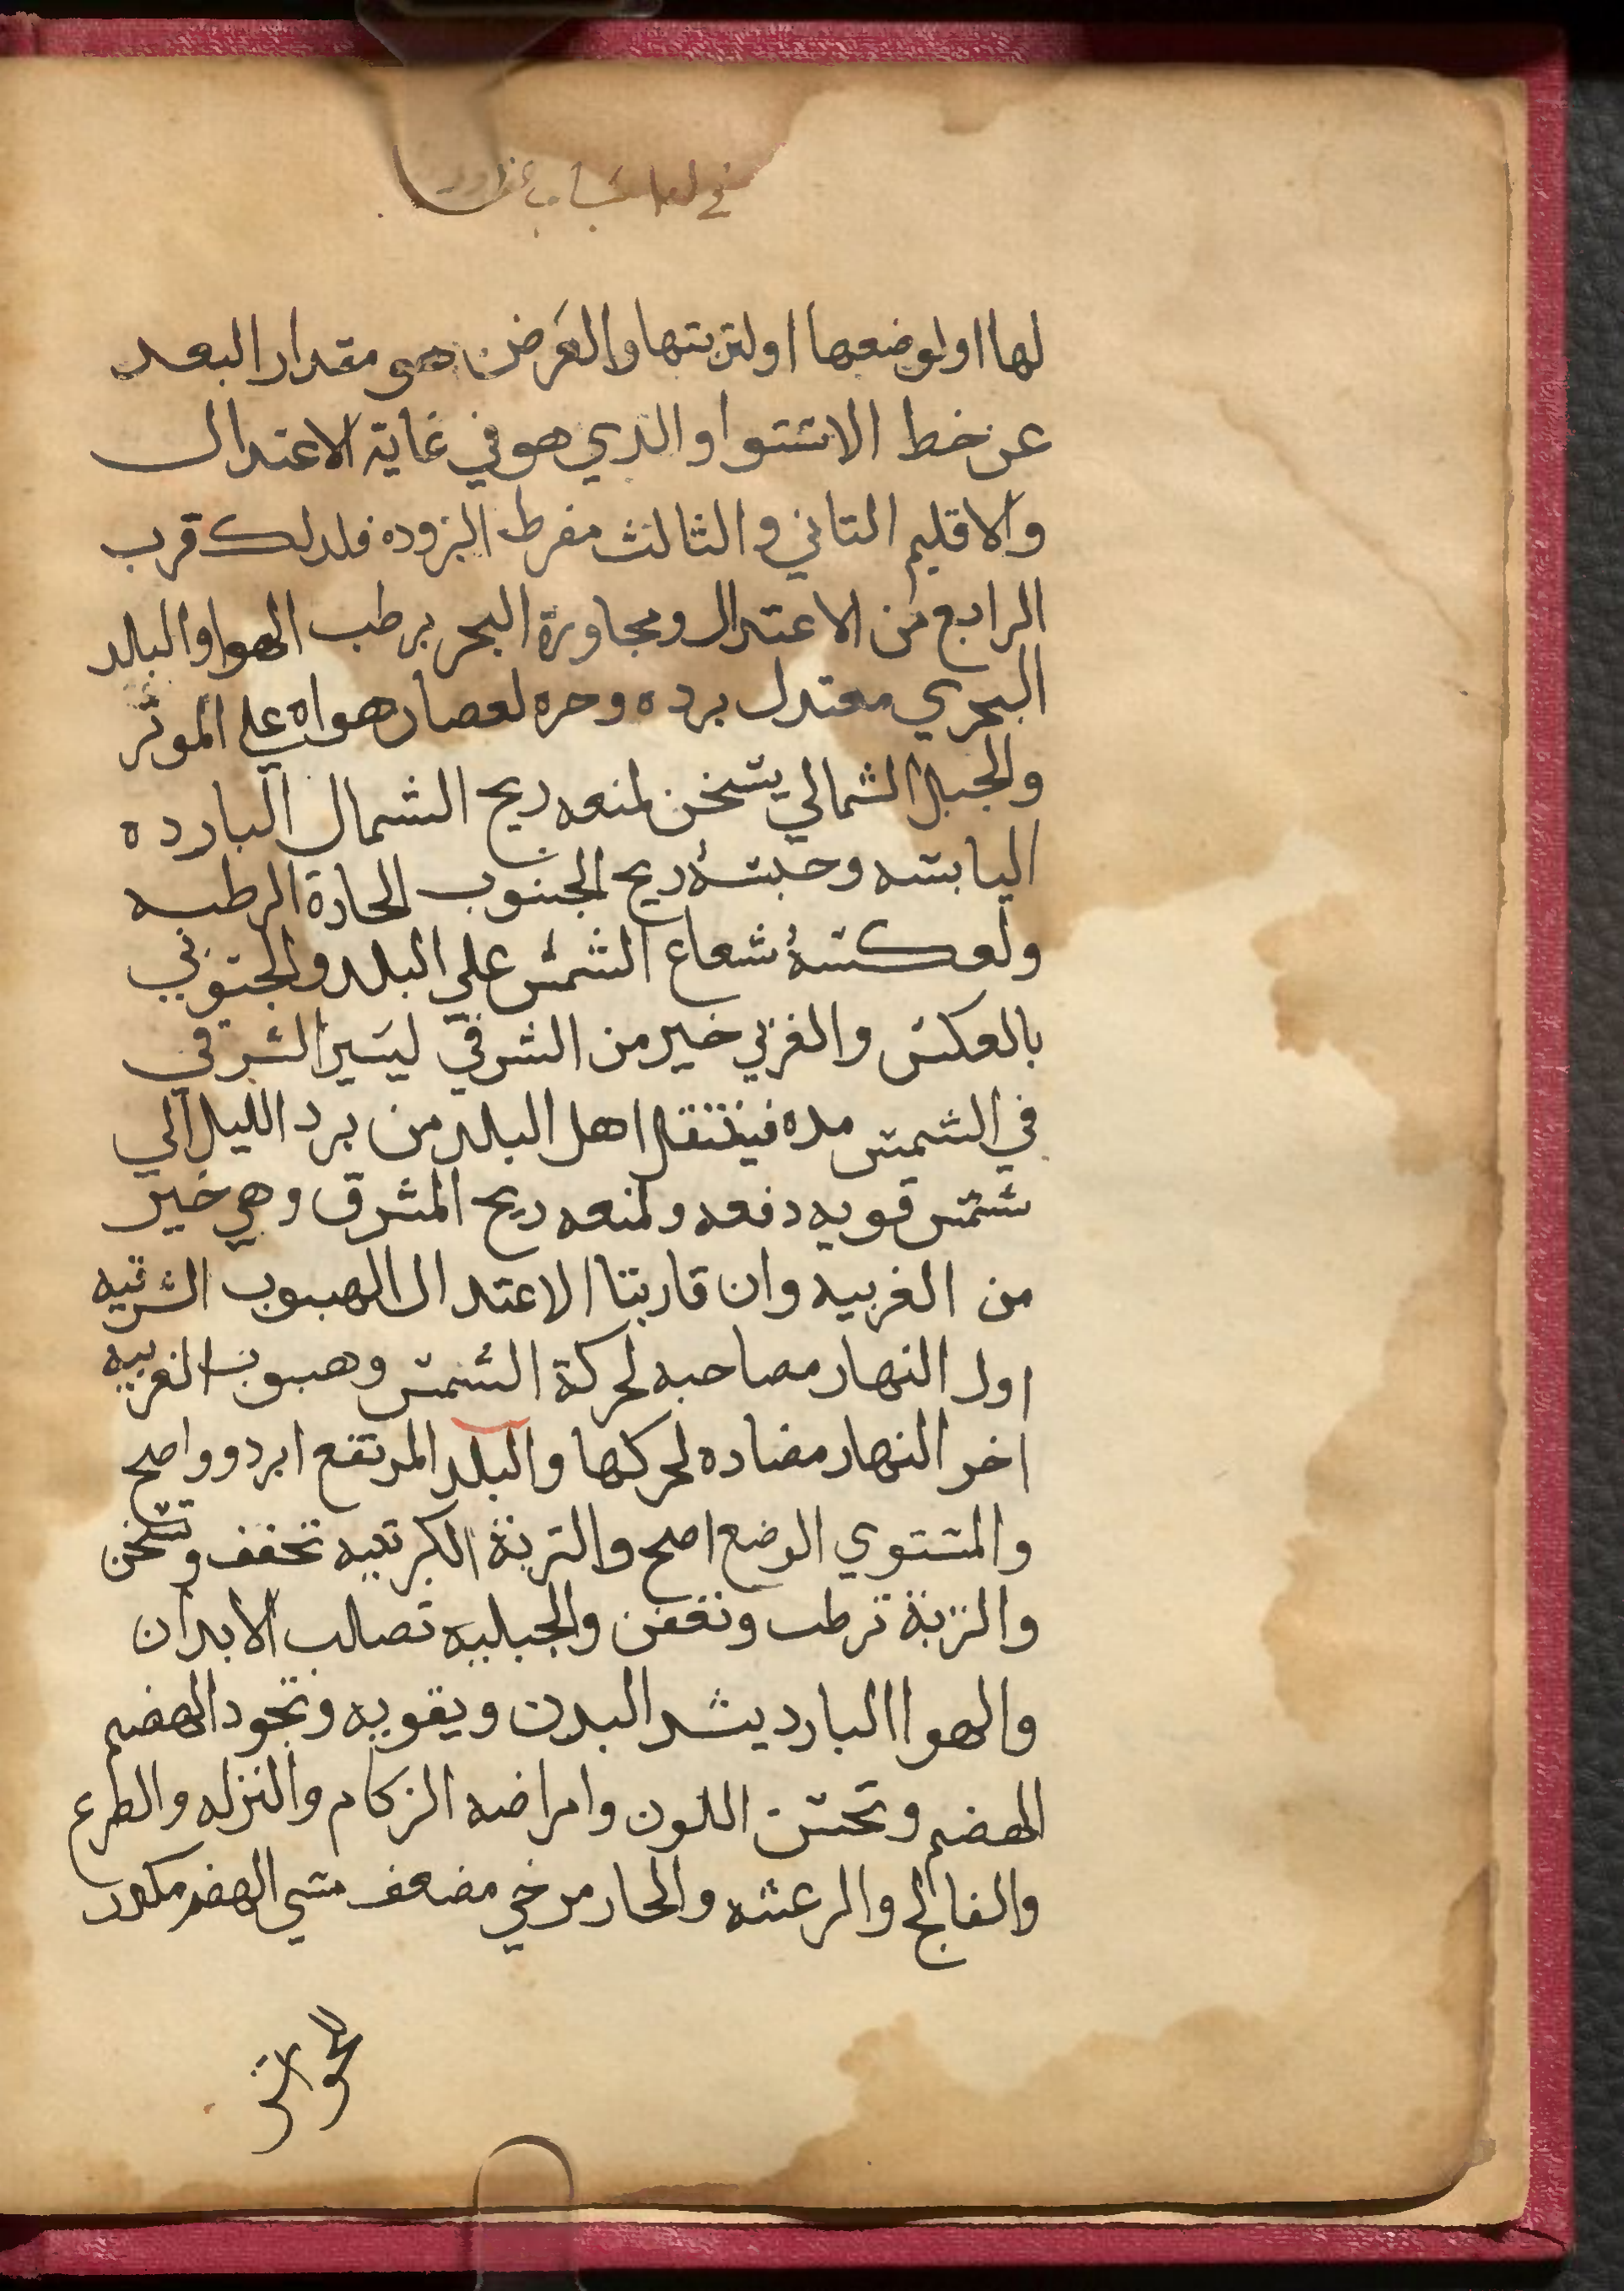 لها او لوضعها او لتربتها والعَرض هو مقدار البعد
عن خط الاستوا والدي هو في غاية الاعتدال
والاقليم التاني والثالث مفرط البروده فلدلك قرب
الرابع من الاعتدال ومجاورة البحر يرطب الهوا والبلد
البحري معتدل برده وحره لعصان هواه علي الموثر
والجبل الشمالي يسخن لمنعه ريح الشمال البارده
اليابسه وحبسهُ ريح الجنوب الحارة الرطبه
ولعكسهُ شعاع الشمس علي البلد والجنوبي
بالعكس والغربي خير من الشرقي ليسير الشرقي
في الشمس مده فينتقل اهل البلد من برد الليل الي
شمس قويه دفعه ولمنعه ريح المشرق وهي خير
من الغربيه وان قاربتا الاعتدال الهبوب الشرقيه
اول النهار مصاحبه لحركة الشمس وهبوب الغربيه
اخر النهار مضاده لحركها والبلد المرتفع ابرد وواصح
والمستوي الوضع اصح والتربة الكبرتيه تجفف وتسخن
والنزبة ترطب وتعفن والجبليه تصلب الابدان
والهوا البارد يشد البدن ويقويه وتجود الهضم
الهضم وتحسن اللون وامراضه الزكام والنزله والصرع
والفالج والرعشه والحار مرخي مضعف مسي الهضم مكدر
للحواس